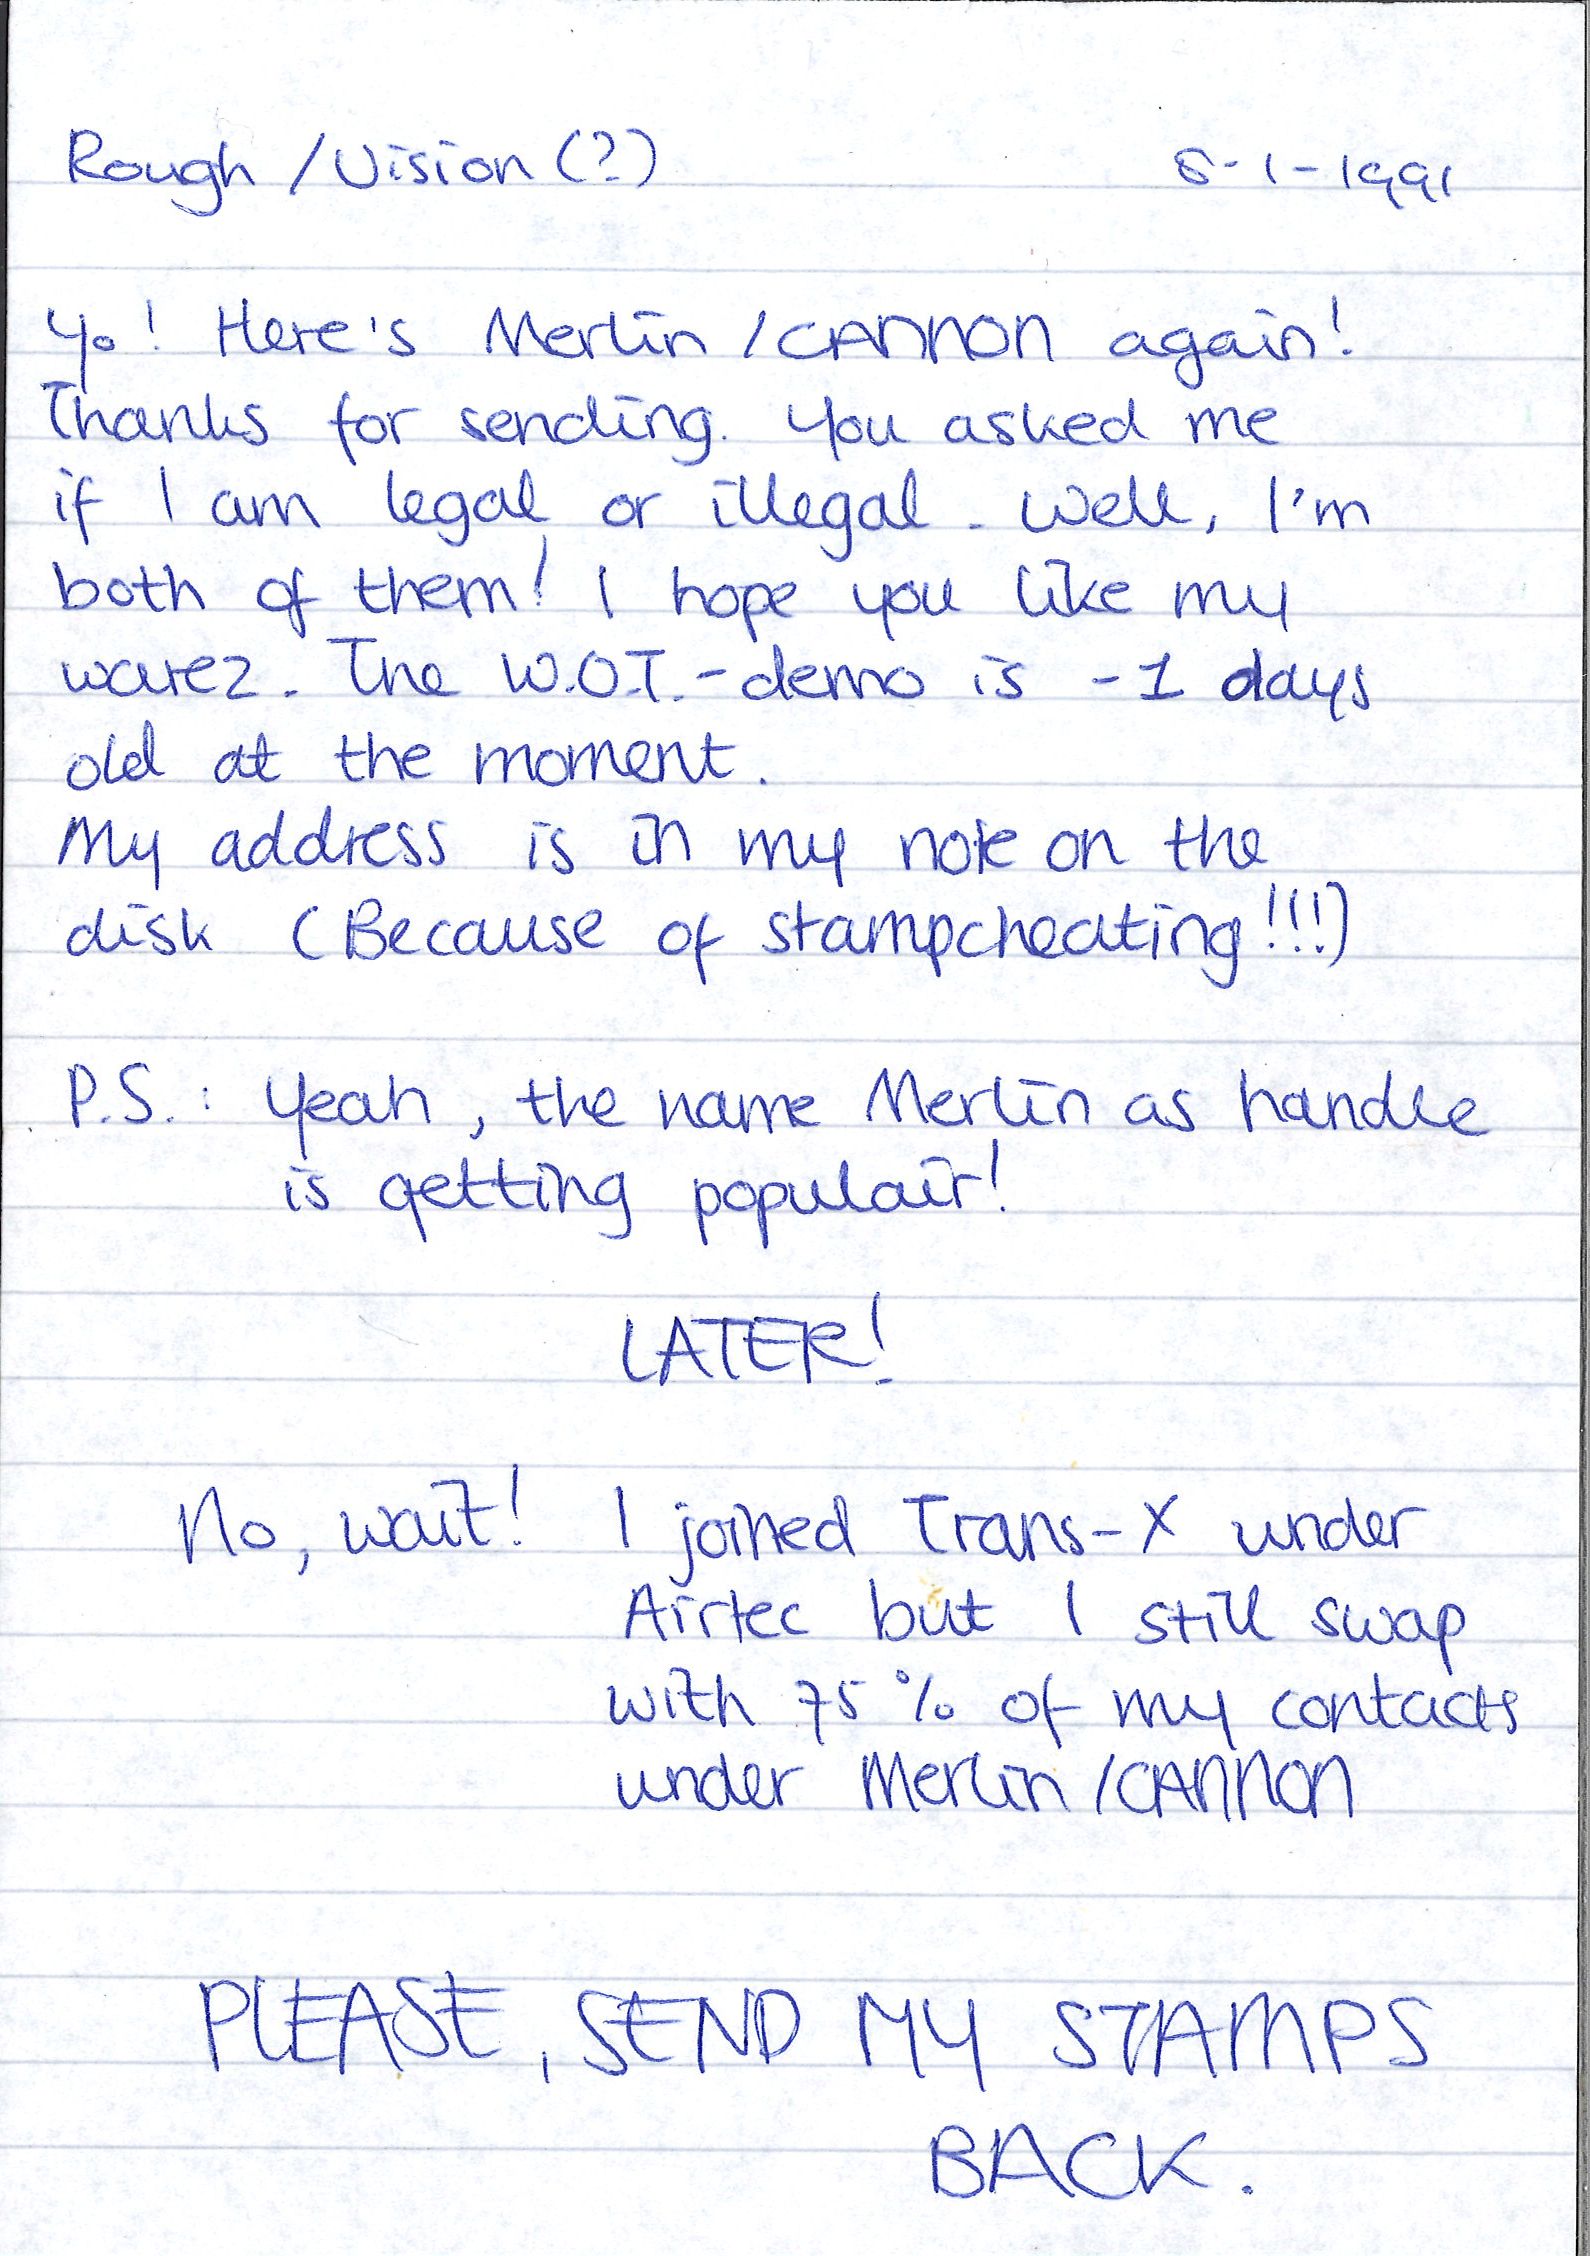 Rough /Vision (?) 8-1-1991
Yo! Here's Merlin /CANNON again!
Thanks for sending. You asked me
if I am legal or illegal. Well, I'm
both of them! I hope you like my
warez. The W.O.T.-demo is -1 days
old at the moment.
My address is in my note on the
disk (Because of stampcheating!!!)
P.S.: Yeah, the name Merlin as handle
is getting populair!
LATER!
No, wait! I joined Trans-X under
Airtec but I still swap
with 75% of my contacts
under Merlin /CANNON
PLEASE, SEND MY STAMPS
BACK.